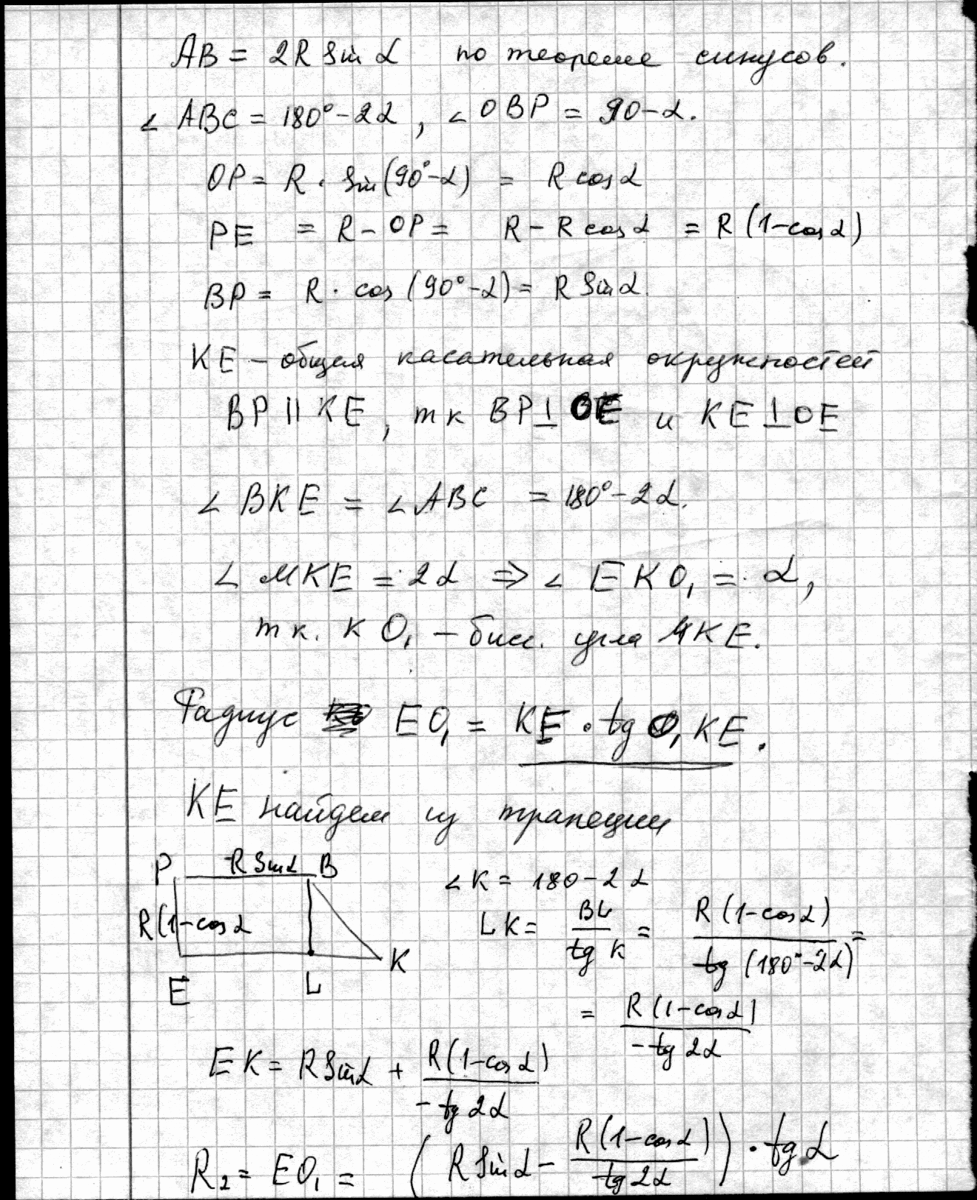 AB = 2R Sin α по теореме синусов.
∠ ABC = 180° - 2α, ∠ OBP = 90 - α.
OP = R · Sin(90° - α) = R cos α
PE = R - OP = R - R cos α = R (1 - cos α)
BP = R · cos (90° - α) = R Sin α.
KE - общая касательная окружностей
BP || KE, тк BP ⊥ OE и KE ⊥ OE
∠ BKE = ∠ ABC = 180° - 2α.
∠ MKE = 2α ⇒ ∠ EKO₁ = α,
т к. KO₁ - бисс. угла MKE.
Радиус EO₁ = KE · tg O₁KE.
KE найдем из трапеции
P R Sin α B
R(1 - cos α
E L K
∠K = 180 - 2α
LK = BL / tg K = R(1 - cos α) / tg (180° - 2α) =
= R(1 - cos α) / -tg 2α
EK = R Sin α + R(1 - cos α) / -tg 2α
R₂ = EO₁ = (R Sin α - R(1 - cos α) / tg 2α) · tg α